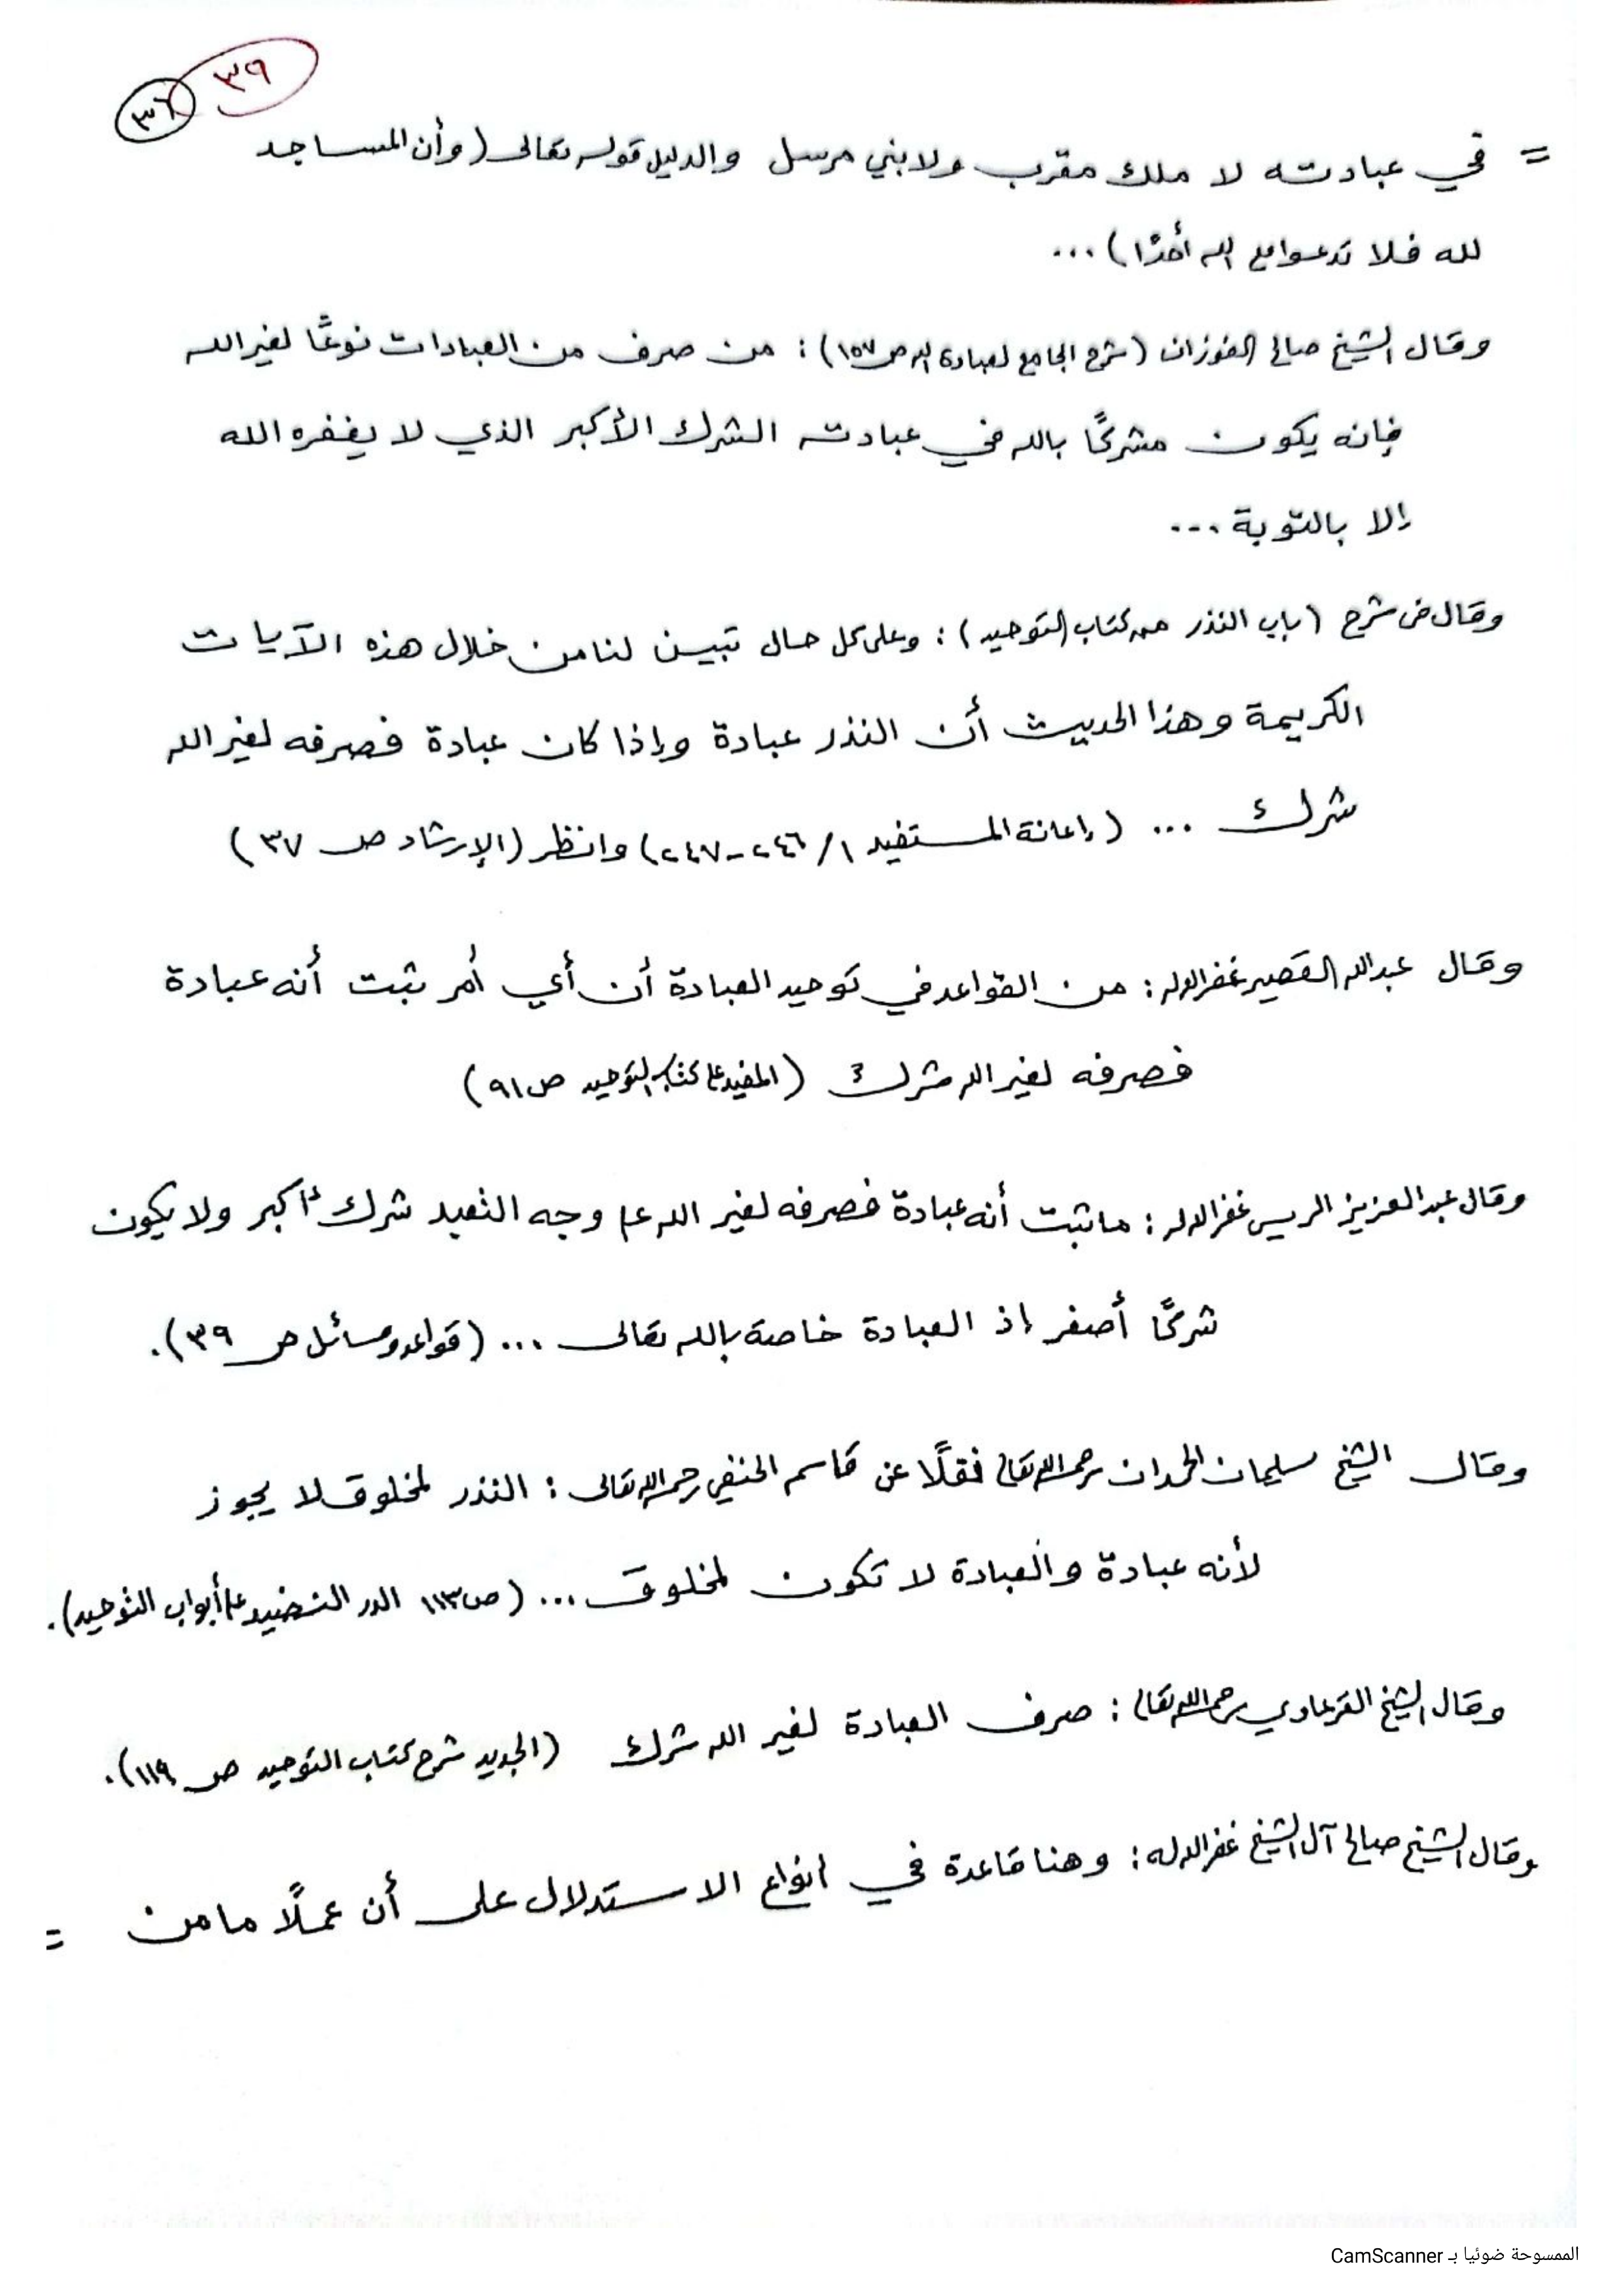 ٣٩
٣٦
= في عبادته لا ملك مقرب ولا نبي مرسل والدليل قوله تعالى (وأن المساجد
لله فلا تدعوا مع الله أحدًا) ...
وقال الشيخ صالح الفوزان (شرح الجامع لعبادة الله ص ١٥٧) : من صرف من العبادات نوعًا لغير الله
فإنه يكون مشركًا بالله في عبادته الشرك الأكبر الذي لا يغفره الله
إلا بالتوبة ...
وقال في شرح (باب النذر من كتاب التوحيد) : وعلى كل حال تبين لنا من خلال هذه الآيات
الكريمة وهذا الحديث أن النذر عبادة وإذا كان عبادة فصرفه لغير الله
شرك ... (إعانة المستفيد ١/ ٢٤٦-٢٤٧) وانظر (الإرشاد ص ٣٧)
وقال عبدالله القصير غفر الله له : من القواعد في توحيد العبادة أن أي أمر ثبت أنه عبادة
فصرفه لغير الله شرك (المفيد على كتاب التوحيد ص ٩١)
وقال عبدالعزيز الريس غفر الله له : ما ثبت أنه عبادة فصرفه لغير الله على وجه التعبد شرك أكبر ولا يكون
شركًا أصغر إذ العبادة خاصة بالله تعالى ... (قواعد ومسائل ص ٣٩).
وقال الشيخ سليمان الحمدان رحمه الله تعالى نقلًا عن قاسم الحنفي رحمه الله تعالى : النذر لمخلوق لا يجوز
لأنه عبادة والعبادة لا تكون لمخلوق ... (ص ١١٣ الدر النضيد على أبواب التوحيد).
وقال الشيخ القرعاوي رحمه الله تعالى : صرف العبادة لغير الله شرك (الجديد شرح كتاب التوحيد ص ١١٩).
وقال الشيخ صالح آل الشيخ غفر الله له : وهنا قاعدة في أنواع الاستدلال على أن عملًا ما من =
الممسوحة ضوئيا بـ CamScanner